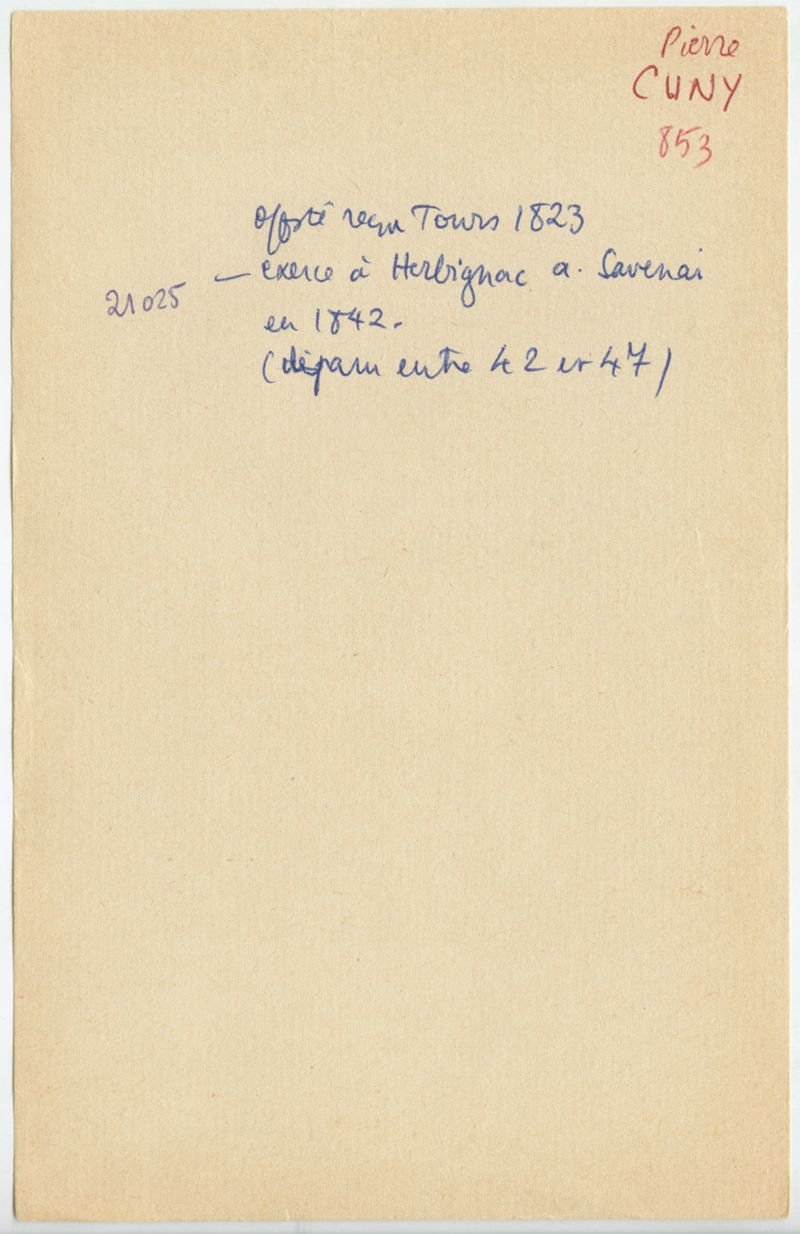 Pierre
CUNY
853
offsté reçu Tours 1823
21025 — exerce à Herbignac a. Savenai
en 1842.
(disparu entre 42 et 47)